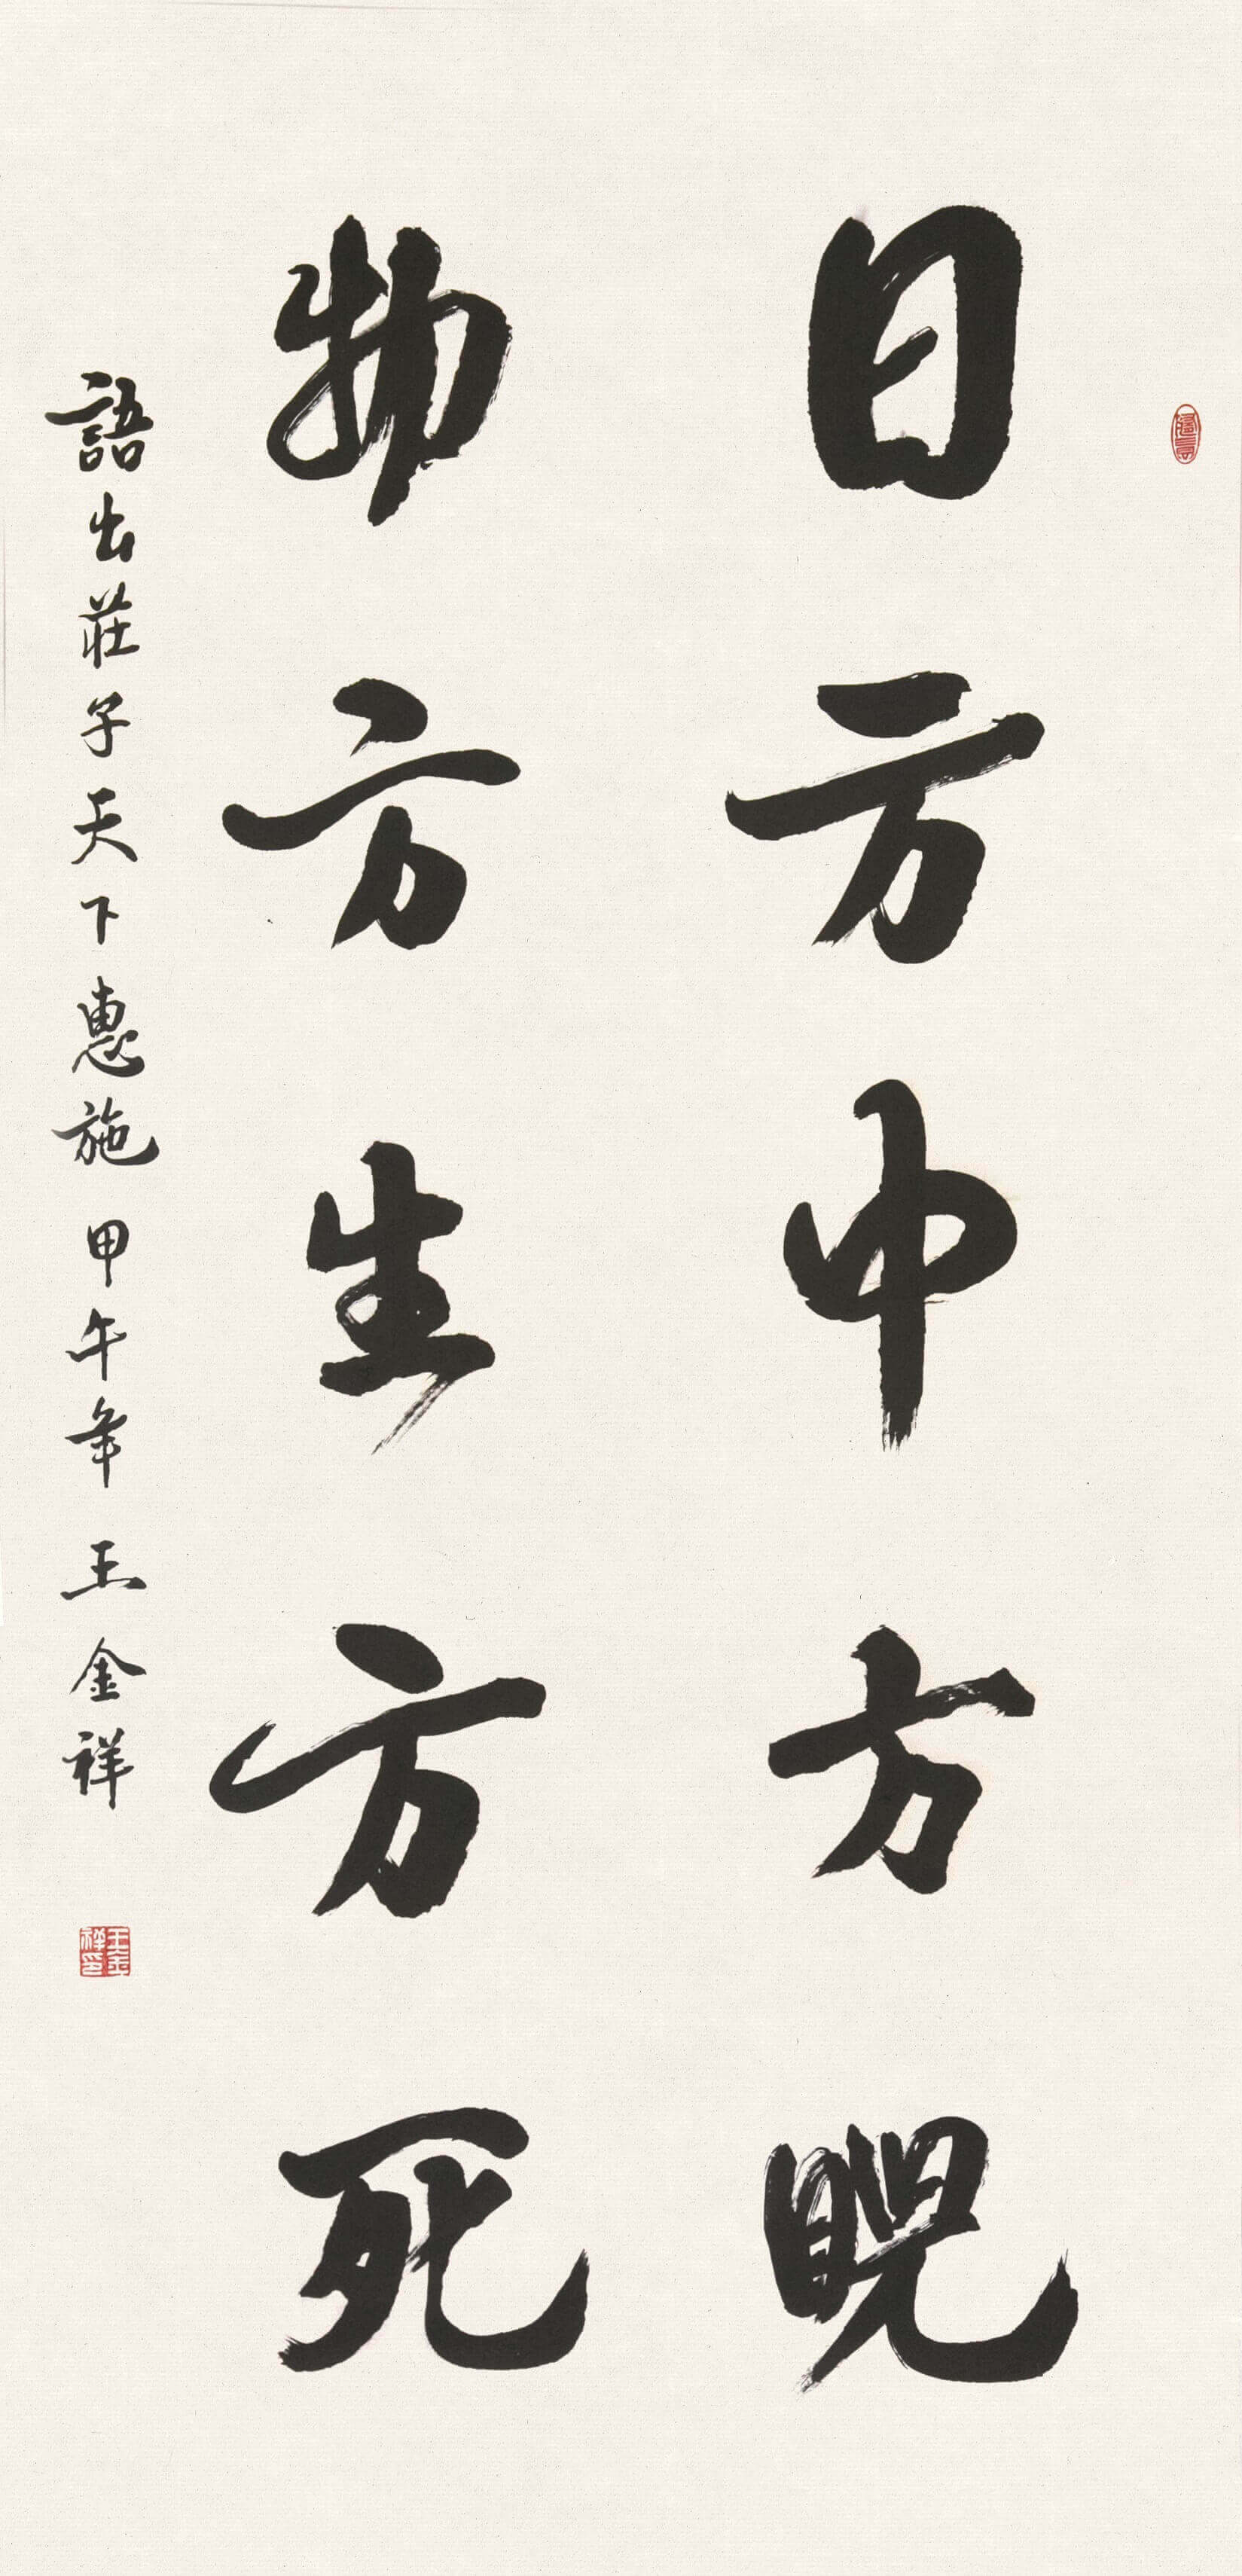 日方中方睨
物方生方死
語出莊子天下惠施 甲午年 王金祥
王金祥印